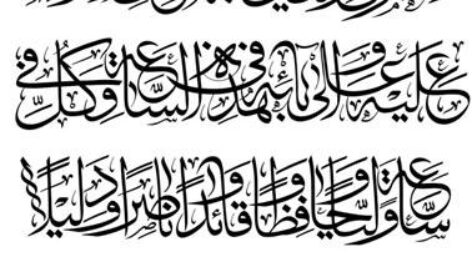 عَلَيْهِ وَعَلَى آبَائِهِ فِي هَذِهِ السَّاعَةِ وَفِي كُلِّ
سَاعَةٍ وَلِيًّا وَحَافِظًا وَقَائِدًا وَنَاصِرًا وَدَلِيلًا